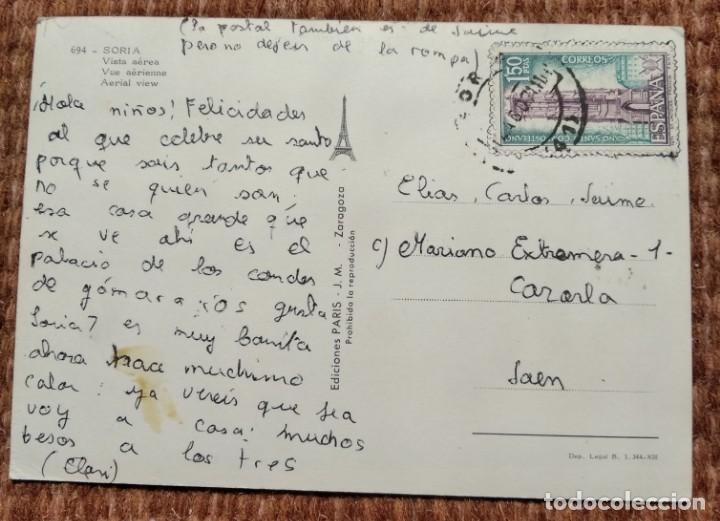 (la postal tambien es de Jaime
pero no dejeis de la rompa)
694 - SORIA
Vista aérea
Vue aérienne
Aerial view
¡Hola niños! Felicidades
al que celebre su santo
porque sois tantos que
no se quien son;
esa casa grande que
se ve ahi es el
palacio de los condes
de gómara ¿os gusta
Soria? es muy bonita
ahora hace muchismo
calor: ya vereis que sea
voy a casa: muchos
besos a los tres
(Clari)
Ediciones PARIS - J. M. - Zaragoza
Prohibida la reproducción
1'50
PTAS
CORREOS
ESPAÑA
Elias, Carlos, Jaime
c) Mariano Extremera - 1 -
Cazorla
Jaen
Dep. Legal B. 1.344-XIII
todocoleccion.net